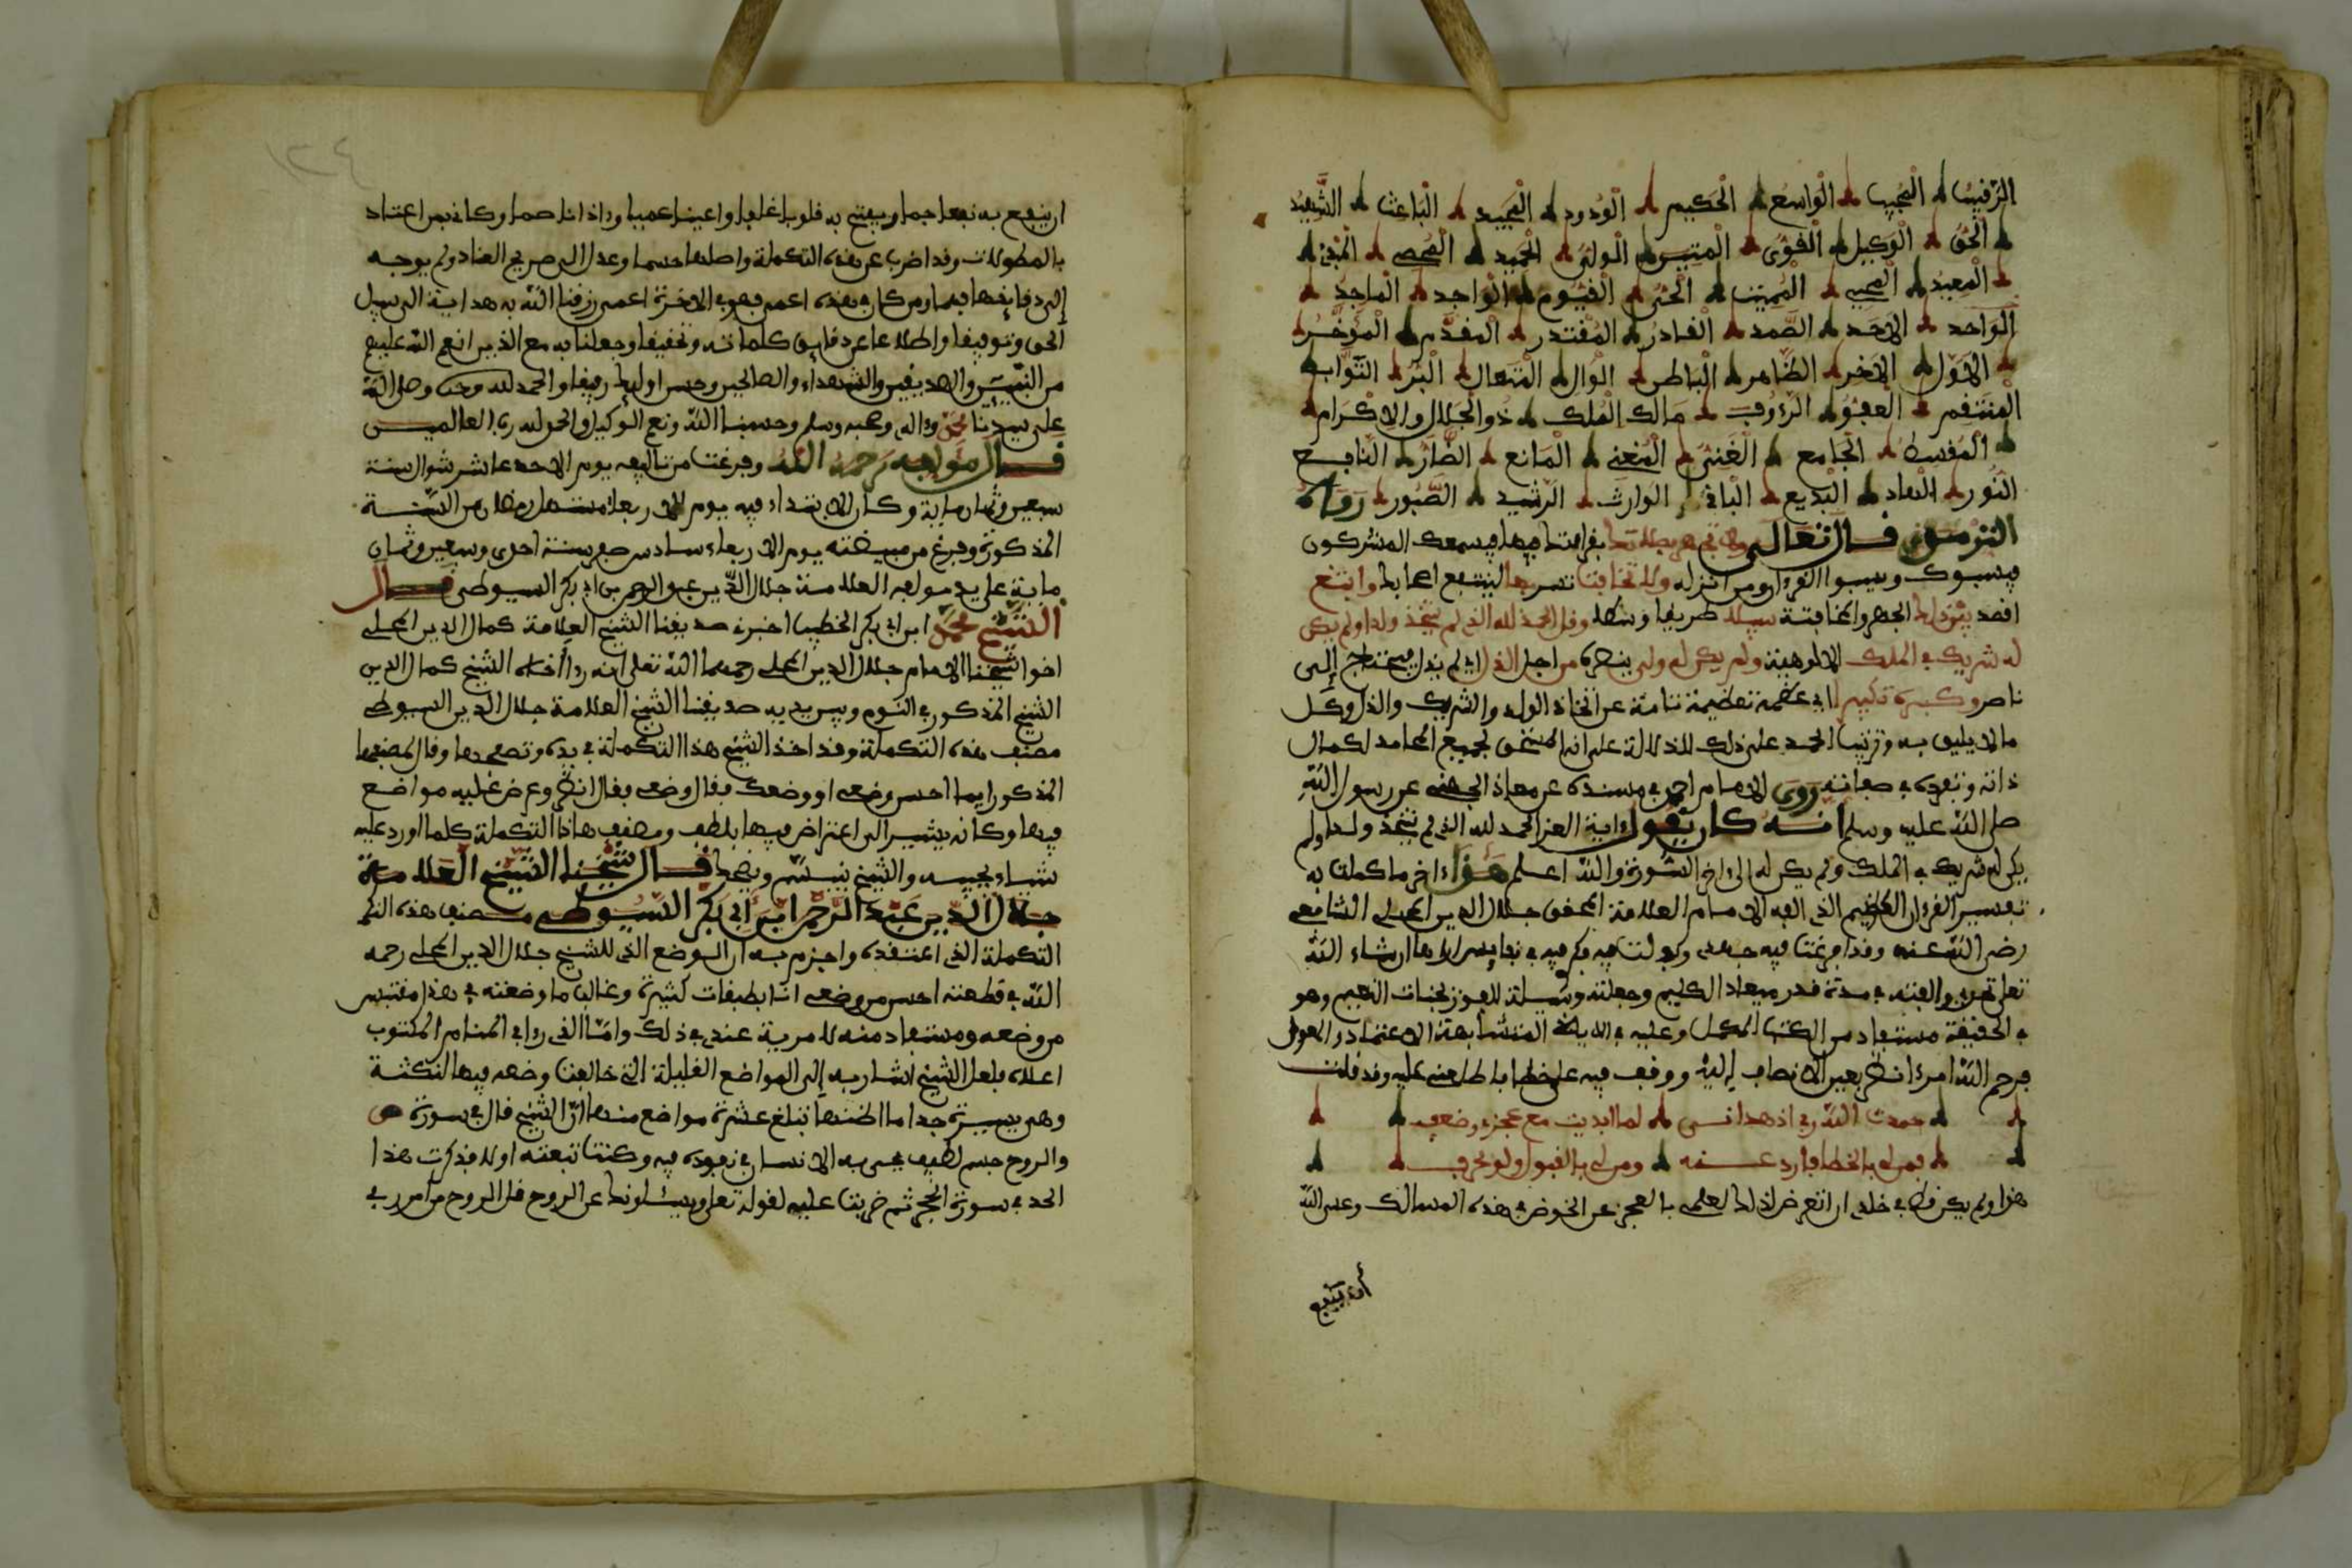 الرقيب المجيب الواسع الحكيم الودود المجيد الباعث الشهيد
الحق الوكيل القوي المتين الولي الحميد المحصي المبدئ
المعيد المحيي المميت الحي القيوم الواجد الماجد
الواحد الاحد الصمد القادر المقتدر المقدم المؤخر
الاول الاخر الظاهر الباطن الوال المتعال البر التواب
المنتقم العفو الرءوف مالك الملك ذو الجلال والاكرام
المقسط الجامع الغني المغني المانع الضار النافع
النور الهاد البديع الباقي الوارث الرشيد الصبور رواه
الترمذي قال تعالى ولا تجهر بصلاتك بقراءتك فيها فيسمعك المشركون
فيسبوك ويسبوا القرءان ومن انزله ولا تخافت تسر بها لينتفع اصحابك وابتغ
اقصد بين ذلك الجهر والمخافتة سبيلا طريقا وسطا وقل الحمد لله الذي لم يتخذ ولدا ولم يكن
له شريك في الملك الالوهية ولم يكن له ولي ينصره من اجل الذل اي لم يذل فيحتاج الى
ناصر وكبره تكبيرا اي عظمه عظيمة تامة عن اتخاذ الولد والشريك والذل وكل
ما لا يليق به وترتيب الحمد على ذلك للدلالة على انه المستحق لجميع المحامد لكمال
ذاته وتفرده في صفاته روى الامام احمد في مسنده عن معاذ الجهني عن رسول الله
صلى الله عليه وسلم انه كان يقول ءاية العز الحمد لله الذي لم يتخذ ولدا ولم
يكن له شريك في الملك ولم يكن له الى ءاخر السورة والله اعلم هذا ءاخر ما كملت به
تفسير القرءان العظيم الذي الفه الامام العلامة المحقق جلال الدين المحلي الشافعي
رضي الله عنه وقد افرغت فيه جهدي وبذلت فيه فكري فيه في نفايس اراها ان شاء الله
تعلى تجدي والفته في مدة قدر ميعاد الكليم وجعلته وسيلة للفوز بجنات النعيم وهو
في الحقيقة مستفاد من الكتاب المكمل وعليه في الاي المتشابهة الاعتماد والمعول
فرحم الله امرءا نظر بعين الانصاف اليه ووقف فيه على خطا فاطلعني عليه وقد قلت
حمدت الله ربي اذ هداني لما ابديت مع عجزي وضعفي
فمن لي بالخطا فارد عنه ومن لي بالقبول ولو بحرف
هذا ولم يكن قط في خلدي ان اتعرض لذلك لعلمي بالعجز عن الخوض في هذه المسالك وعسى الله
ان ينفع
ان ينفع به نفعا جما ويفتح به قلوبا غلفا واعينا عميا وءاذانا صما وكاني بمن اعتاد
بالمطولات وقد اضرب عن هذه التكملة واصلها حسما وعدل الى صريح العناد ولم يوجه
الى دقايقها فهما ومن كان في هذه اعمى فهو في الاخرة اعمى رزقنا الله به هداية الى سبيل
الحق وتوفيقا واطلاعا عن دقايق كلماته وتحقيقا وجعلنا به مع الذين انعم الله عليهم
من النبيين والصديقين والشهداء والصالحين وحسن اوليك رفيقا والحمد لله وحده وصلى الله
على سيدنا محمد وءاله وصحبه وسلم وحسبنا الله ونعم الوكيل والحمد لله رب العالمين
قال مؤلفه رحمه الله وفرغت من تاليفه يوم الاحد عاشر شوال سنة
سبعين وثمان ماية وكان الابتداء فيه يوم الاربعاء مستهل رمضان من السنة
المذكورة وفرغ من تبييضه يوم الاربعاء سادس صفر سنة احدى وسبعين وثمان
ماية على يد مولفه العلامة جلال الدين عبد الرحمن بن ابي بكر السيوطي قال
الشيخ محمد ابن ابي بكر الخطيب اخبرني صديقنا الشيخ العلامة كمال الدين المحلي
اخو شيخنا الامام جلال الدين المحلي رحمهما الله تعلى انه رءا اخاه الشيخ كمال الدين
الشيخ المذكور في النوم وبين يديه صديقنا الشيخ العلامة جلال الدين السيوطي
مصنف هذه التكملة وقد اخذ الشيخ هذا التكملة في يده وتصفحها وقال لمصنفها
المذكور ايهما احسن وضعي او وضعك فقال وضعي فقال انظر وعرض عليه مواضع
فيها وكانه يشير الى اعتراض فيها بلطف ومصنف هاذا التكملة كلما اورد عليه
شياء يجيبه والشيخ يتبسم ويضحك قال شيخنا الشيخ العلامة
جلال الدين عبد الرحمن ابن ابي بكر السيوطي مصنف هذه التكم
التكملة الذي اعتقده واجزم به ان الوضع الذي للشيخ جلال الدين المحلي رحمه
الله في قطعته احسن من وضعي انا بطبقات كثيرة وغالب ما وضعته في هذا مقتبس
من وضعه ومستفاد منه لا مرية عندي في ذلك واما الذي رءاى المنام المكتوب
اعلاه فلعل الشيخ اشار به الى المواضع القليلة التي خالفت وضعه فيها لنكتة
وهي يسيرة جدا ما اظنها تبلغ عشرة مواضع منها ان الشيخ قال في سورة ص
والروح جسم لطيف يحيى به الانسان في نفوذه فيه وكنت تبعته اولا فذكرت هذا
الحد في سورة الحجر ثم ضربت عليه لقوله تعلى ويسئلونك عن الروح قل الروح من امر ربي